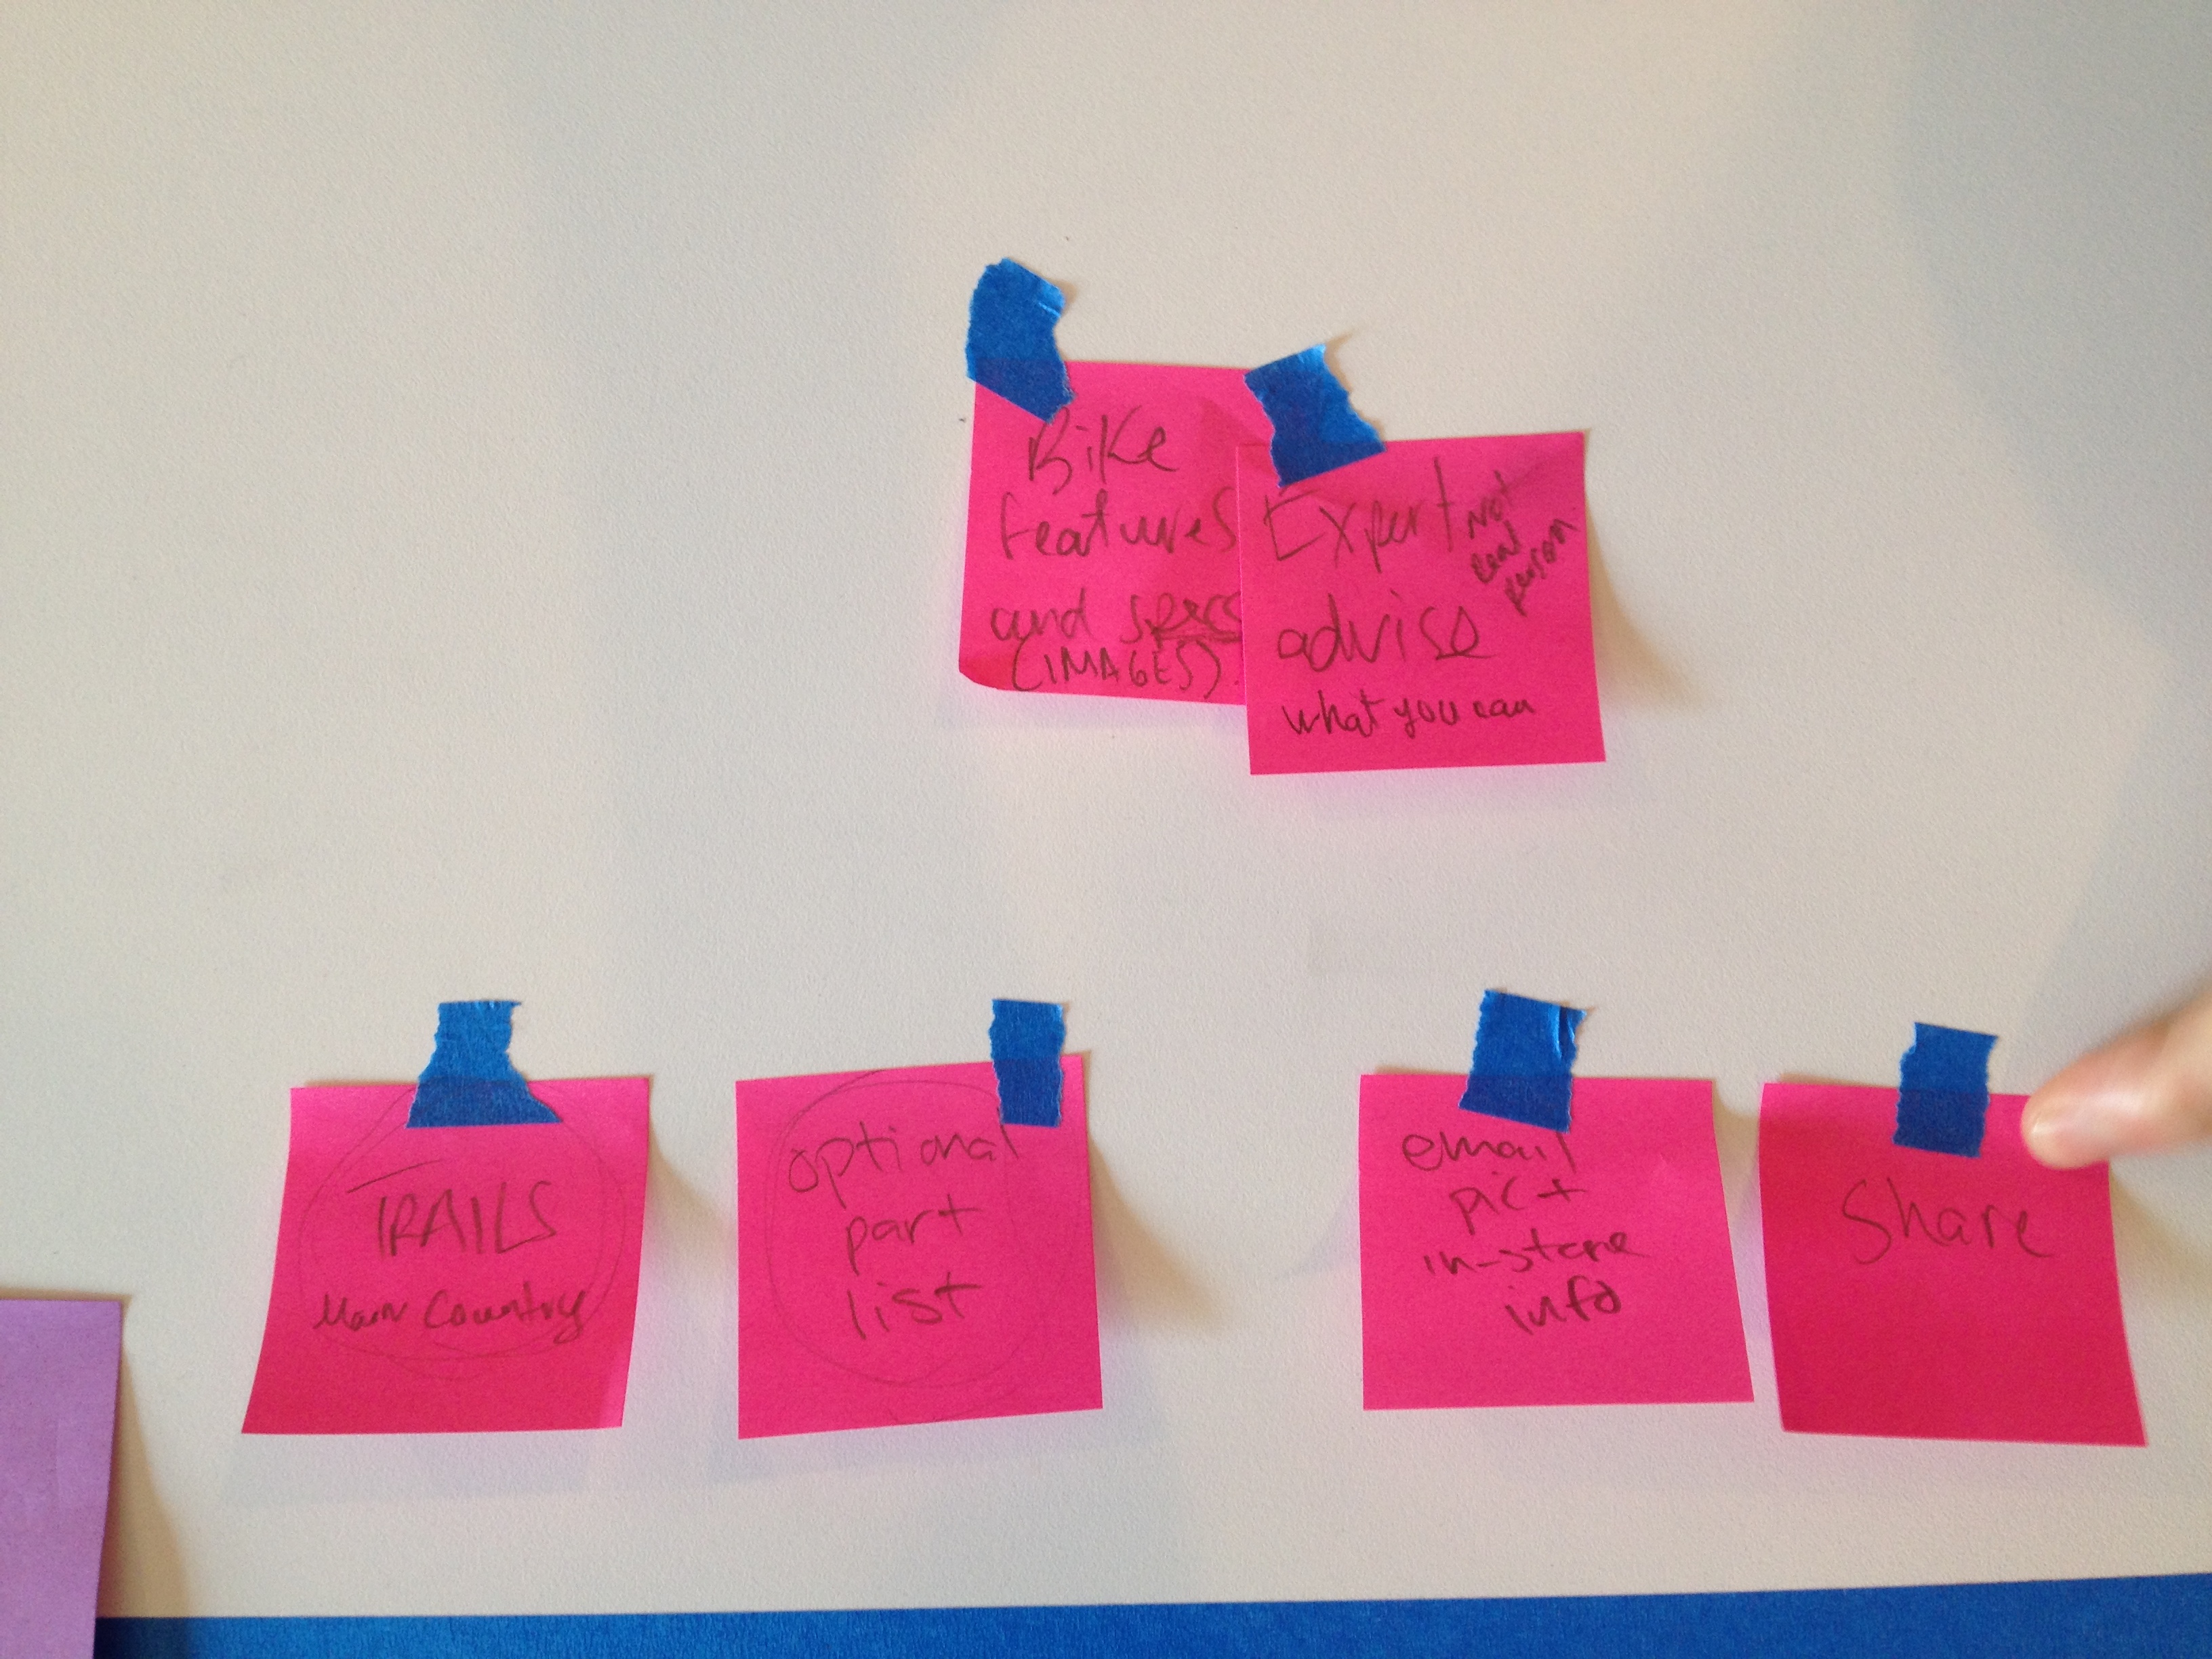 Bike
features
and specs
(IMAGES).
Expert
Not
real
person
advise
what you can
TRAILS
Country
optional
part
list
email
pic +
in-store
info
Share